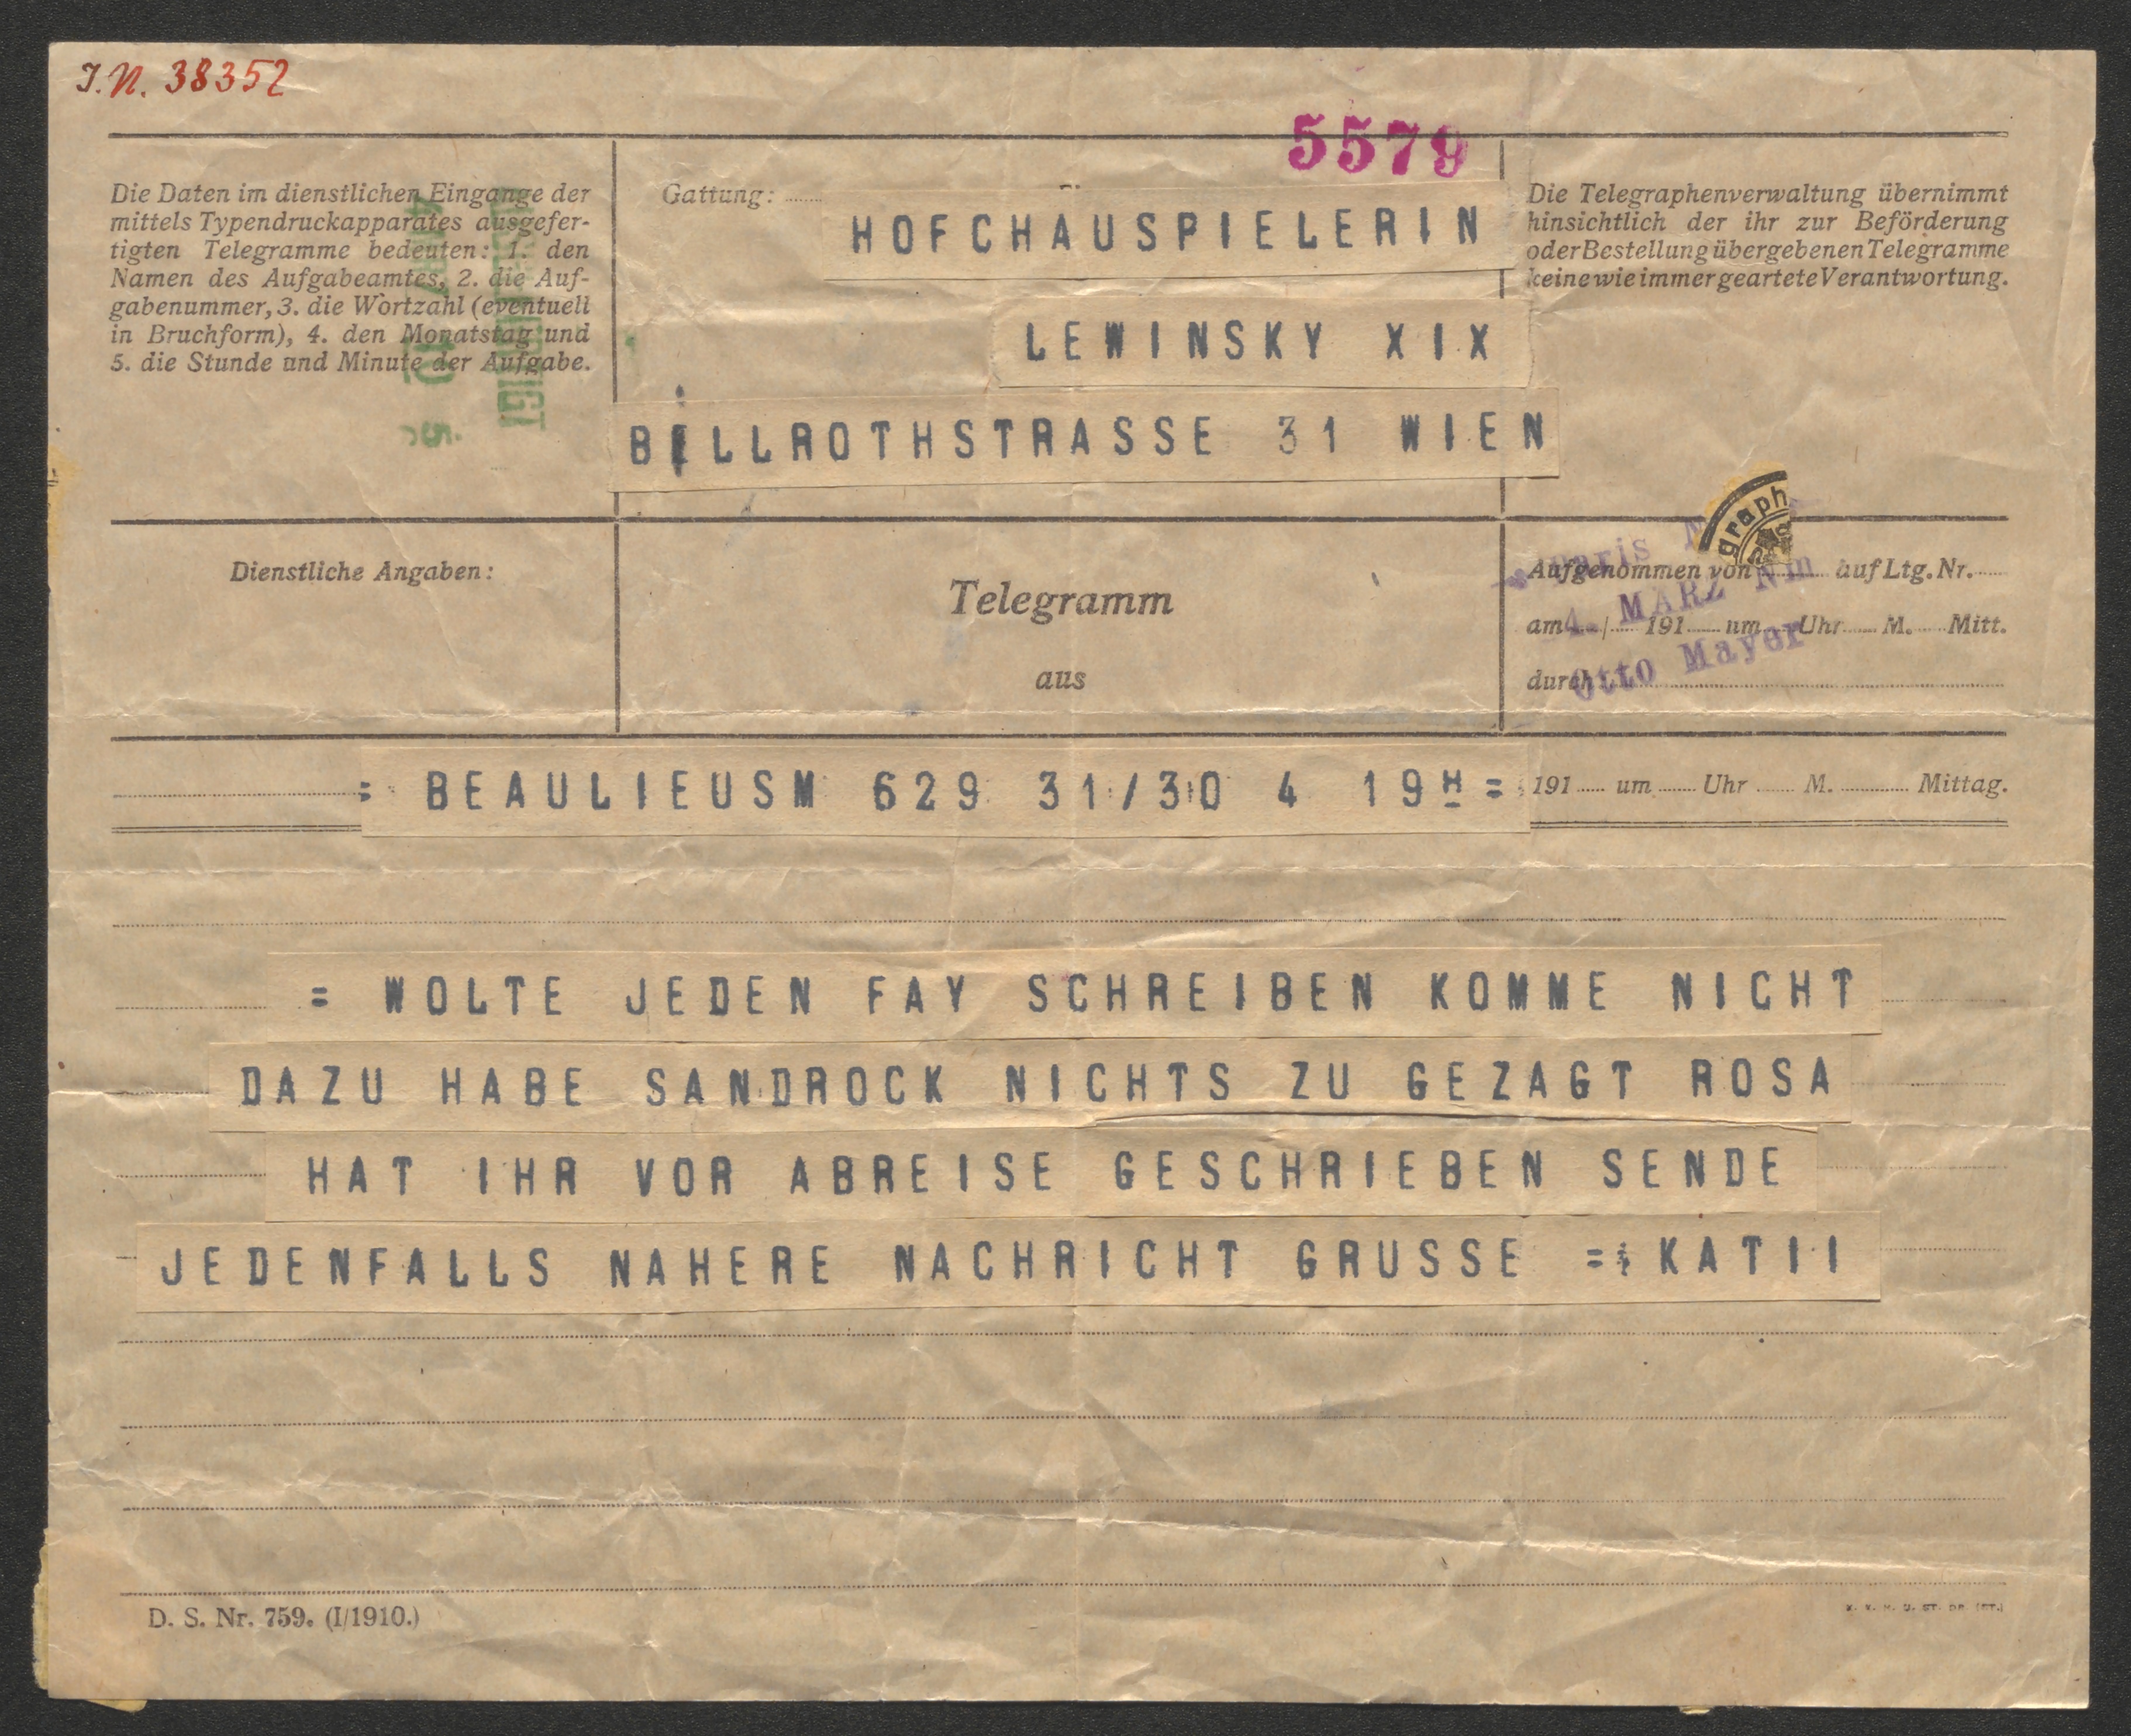 J.N. 38352
5579
Die Daten im dienstlichen Eingange der
mittels Typendruckapparates ausgefer-
tigten Telegramme bedeuten: 1. den
Namen des Aufgabeamtes, 2. die Auf-
gabenummer, 3. die Wortzahl (eventuell
in Bruchform), 4. den Monatstag und
5. die Stunde und Minute der Aufgabe.
Gattung:
HOFCHAUSPIELERIN
LEWINSKY XIX
BILLROTHSTRASSE 31 WIEN
Die Telegraphenverwaltung übernimmt
hinsichtlich der ihr zur Beförderung
oder Bestellung übergebenen Telegramme
keine wie immer geartete Verantwortung.
Dienstliche Angaben:
Telegramm
aus
graph
Aufgenommen von auf Ltg. Nr.
am / 191 um Uhr M. Mitt.
durch
Paris
4. MÄRZ Nm
Otto Mayer
= BEAULIEUSM 629 31/30 4 19H =
191 um Uhr M. Mittag.
= WOLTE JEDEN FAY SCHREIBEN KOMME NICHT
DAZU HABE SANDROCK NICHTS ZU GEZAGT ROSA
HAT IHR VOR ABREISE GESCHRIEBEN SENDE
JEDENFALLS NAHERE NACHRICHT GRUSSE = KATII
D. S. Nr. 759. (I/1910.)